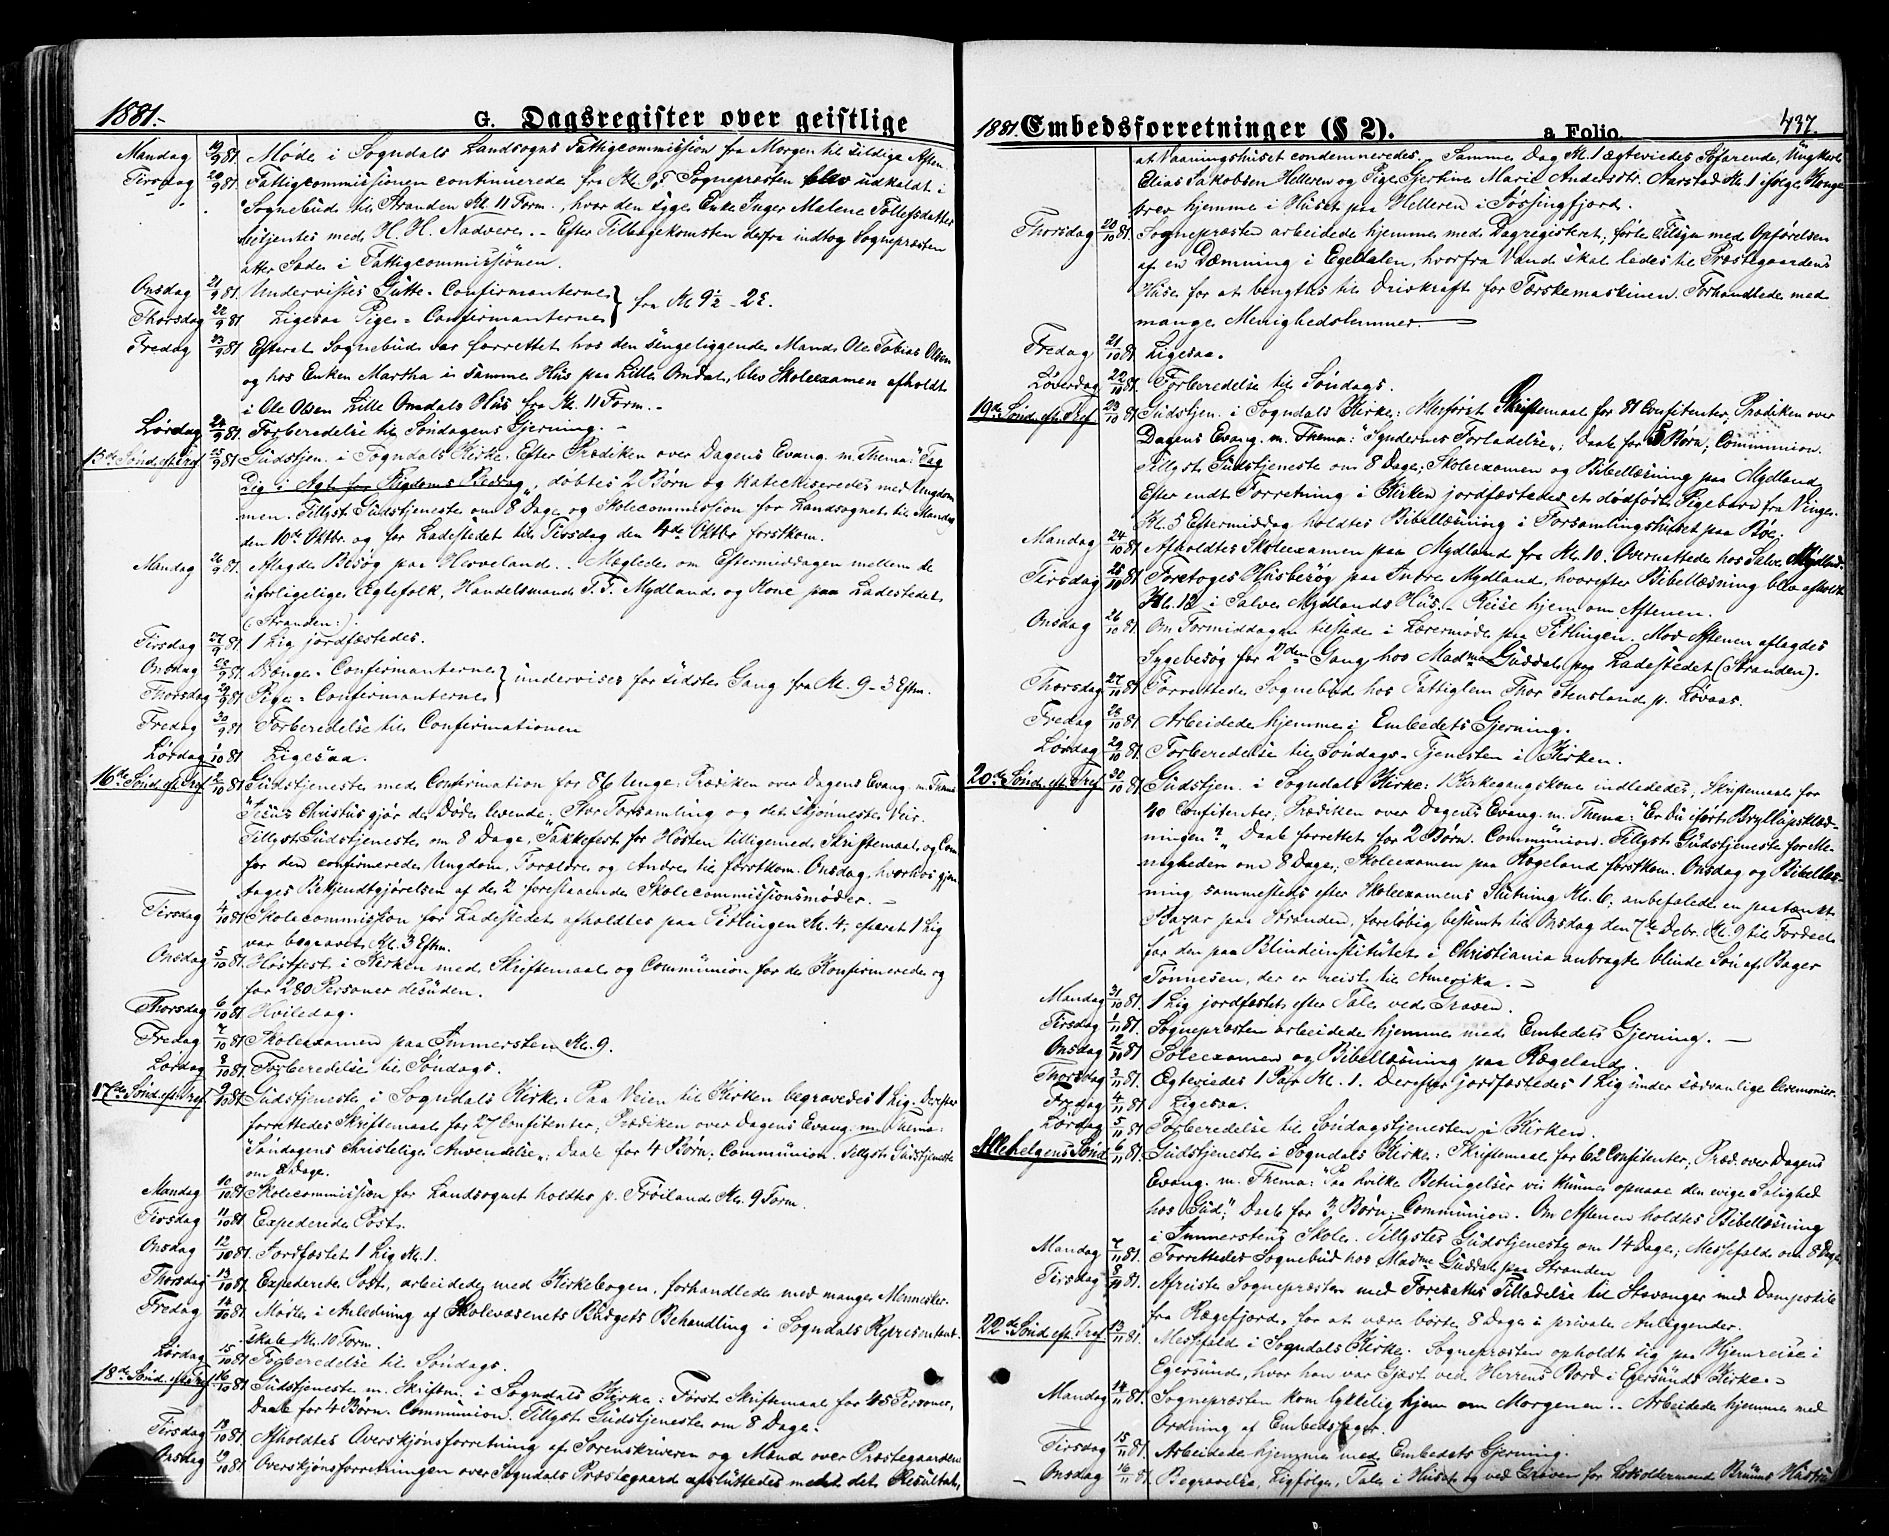 1881.
G. Dagsregister over geistlige
Mandag 19/9 81. Møde i Sogndals Landsogns Fattigcommission fra Morgen til sildige Aften.
Tirsdag 20/9 81. Fattigcommissionen continuerede fra Kl. 9; Sognepræsten blev udkaldt i
Sognebud til Stranden Kl. 11 Form., hvor den syge Enke Inger Malene Tollefsdatter
betjentes med H. H. Nadvere. - Efter Tilbagekomsten derfra indtog Sognepræsten
atter Sæde i Fattigcommissionen.
Onsdag 21/9 81. Undervistes Gutte-Confirmanterne } fra Kl 9½ - 2½.
Thorsdag 22/9 81 Ligesaa Pige-Confirmanterne
Fredag 23/9 81 Efterat Sognebud var forrettet hos den sengeliggende Mand Ole Tobias Olsen
og hos Enken Martha i samme Hus paa Lille Omdal, blev Skoleexamen afholdt
i Ole Olsen Lille Omdals Hus fra Kl. 11 Form. -
Lørdag 24/9 81. Forberedelse til Søndagens Gjerning. -
15de Sønd. eft. Tref. 25/9 81. Gudstjen. i Sogndals Kirke. Efter Prædiken over Dagens Evang. m. Thema: "Tag
Dig i Agt for Rigdoms Bedrag", døbtes 2 Børn og katechiseredes med Ungdom
men. Tillyst Gudstjeneste om 8 Dage og Skolecommission for Landsognet til Mandag
den 10de Oktbr. og for Ladestedet til Tirsdag den 4de Oktbr. førstkom.
Mandag 26/9 81. Aflagde Besøg paa Hoveland. - Mæglede om Eftermiddagen mellem de
uforligelige Ægtefolk, Handelsmand T. T. Mydland og Kone paa Ladestedet
(Stranden:).
Tirsdag 27/9 81. 1 Lig jordfæstedes.
Onsdag 28/9 81. Drenge-Confirmanterne } undervises for sidste Gang fra Kl. 9-3 Eftm.
Thorsdag 29/9 81 Pige-Confirmanterne
Fredag 30/9 81 Forberedelse til Confirmationen
Lørdag 1/10 81. Ligesaa.
16de Sønd. eft. Tref. 2/10 81 Gudstjeneste med Confirmation for 86 Unge. Prædiken over Dagens Evang. m. Thema
"Jesus Christus gjør de Døde levende; Stor Forsamling og det skjønneste Veir.
Tillyst Gudstjeneste om 8 Dage, "Takkefest for Høsten tilligemed Skriftemaal og Com
for den confirmerede Ungdom, Forældre og Andre til førstkom. Onsdag, hvorhos gjen
tages Bekjendtgjørelsen af de 2 forestaaende Skolecommissionsmøder. -
Tirsdag 4/10 81 Skolecommission for Ladestedet afholdtes paa Kl. 4, efterat 1 Lig
var begravet Kl. 3 Eftm.
Onsdag 5/10 81. Høstfest i Kirken med Skriftemaal og Communion for de Konfirmerede og
for 280 Personer desuden.
Thorsdag 6/10 81 Hviledag.
Fredag 7/10 81 Skoleexamen paa Immersten Kl. 9.
Lørdag 8/10 81. Forberedelse til Søndags.
17de Sønd. eft. Tref. 9/10 81. Gudstjeneste i Sogndals Kirke. Paa Veien til Kirken begravedes 1 Lig. Derefter
forrettedes Skriftemaal for 27 Confitenter; Prædiken over Dagens Evang. m. Thema:
"Søndagens Christelige Anvendelse"; Daab for 4 Børn; Communion. Tillyst Gudstjeneste
om 8 Dage.
Mandag 10/10 81 Skolecommission for Landsognet holdtes p. Frøiland Kl. 9 Form.
Tirsdag 11/10 81. Expederede Post.
Onsdag 12/10 81. Jordfæstet 1 Lig Kl. 1.
Thorsdag 13/10 81. Expederede Post, arbeidede med Kirkebogen, forhandlede med mange Mennesker.
Fredag 14/10 81. Møde i Anledning af Skolevæsenets Budgets Behandling i Sogndals Repræsentant-
skab Kl. 10 Form.
Lørdag 15/10 81. Forberedelse til Søndags.
18de Sønd. eft. Tref. 16/10 81. Gudstjeneste m. Skriftm. i Sogndals Kirke: Først Skriftemaal for 45 Personer,
Daab for 4 Børn. Communion. Tillyst Gudstjeneste om 8 Dage.
Tirsdag 18/10 81. Afholdtes Overskjønsforretning af Sorenskriveren og Mænd over Præstegaarden
Onsdag 19/10 81. Overskjønsforretningen over Sogndals Præstegaard afsluttedes med det Resultat,
1881. Embedsforretninger (§ 2). a Folio. 437.
at Vaaningshuset condemneredes. Samme Dag Kl. 1 ægteviedes Søfarende, Ungkarl
Elias Jakobsen Helleren og Pige Gjertine Marie Andersdtr. Aarstad Kl. 1 ifølge Konge
brev hjemme i Huset paa Helleren i Jøssingfjord.
Thorsdag 20/10 81. Sognepræsten arbeidede hjemme med Dagregistret; førte Tilsyn med Opførelsen
af en Dæmning i Egedalen, hvorfra Vand skal ledes til Præstegaardens
Huse for at benyttes til Drivkraft for Tærskemaskinen. Forhandlede med
mange Menighedslemmer.
Fredag 21/10 81. Ligesaa.
Løverdag 22/10 81. Forberedelse til Søndags.
19de Sønd. eft. Tref. 23/10 81. Gudstjen. i Sogndals Kirke: Allerførst Skriftemaal for 81 Confitenter, Prædiken over
Dagens Evang. m. Thema: "Syndernes Forladelse"; Daab for 5 Børn; Communion.
Tillyst Gudstjeneste om 8 Dage; Skoleexamen og Bibellæsning paa Mydland.
Efter endt Forretning i Kirken jordfæstedes et dødfødt Pigebarn fra Vinge.
Kl. 5 Eftermiddag holdtes Bibellæsning i Forsamlingshuset paa Bøe;
Mandag 24/10 81. Afholdtes Skoleexamen paa Mydland fra Kl. 10. Overnattede hos Salve Mydland.
Tirsdag 25/10 81. Foretoges Husbesøg paa Indre Mydland, hvorefter Bibellæsning blev afholdt
Kl. 12 i Salve Mydlands Hus. - Reise hjem om Aftenen.
Onsdag 26/10 81. Om Formiddagen tilstede i Lærermøde paa . Mod Aftenen aflagdes
Sygebesøg for 2den Gang hos Madme Guddal paa Ladestedet (Stranden).
Thorsdag 27/10 81. Forrettedes Sognebud hos Fattiglem Thor Stensland p. Løvaas.
Fredag 28/10 81. Arbeidede hjemme i Embedets Gjerning.
Lørdag 29/10 81. Forberedelse til Søndags-Tjenesten i Kirken.
20de Sønd. eft. Tref. 30/10 81. Gudstjen. i Sogndals Kirke: 1 Kirkegangskone indlededes; Skriftemaal for
40 Confitenter, Prædiken over Dagens Evang. m. Thema: "Er Du iført Bryllupsklæd-
ningen?" Daab forrettet for 2 Børn. Communion. Tillyst Gudstjeneste for Me-
nigheden om 8 Dage; Skoleexamen paa Rægeland førstkom. Onsdag og Bibellæs-
ning sammesteds efter Skoleexamens Slutning Kl. 6; anbefalede en paatænkt
Bazar paa Stranden, foreløbig bestemt til Onsdag den 7de Debr. Kl. 9 til Fordeel
for den paa Blindeinstitutet i Christiania anbragte blinde Søn af Bager
Tønnesen, der er reist til Amerika. -
Mandag 31/10 81. 1 Lig jordfæstet efter Tale ved Graven.
Tirsdag 1/11 81. Sognepræsten arbeidede hjemme med Embedets Gjerning. -
Onsdag 2/11 81. Soleexamen og Bibellæsning paa Rægeland.
Thorsdag 3/11 81. Ægteviedes 1 Par Kl. 1. Derefter jordfæstedes 1 Lig under sædvanlige Ceremonier.
Fredag 4/11 81. Ligesaa.
Lørdag 5/11 81. Forberedelse til Søndagstjenesten i Kirken.
Allehelgens Sønd. 6/11 81. Gudstjeneste i Sogndals Kirke: Skriftemaal for 62 Confitenter; Præd. over Dagens
Evang. m. Thema: "Paa hvilke Betingelser vi kunne opnaae den evige Salighed
hos Gud"; Daab for 3 Børn; Communion. Om Aftenen holdtes Bibellæsning
i Immerstens Skole. Tillystes Gudstjeneste om 14 Dage; Messefald om 8 Dage.
Mandag 7/11 81. Forrettedes Sognebud hos Madme Guddal paa Stranden
Tirsdag 8/11 81. Afreiste Sognepræsten med Foresattes Tilladelse til Stavanger med Dampskib
fra Rægefjord, for at være borte 8 Dage i private Anliggender.
22de Sønd. eft. Tref. 13/11 81. Messefald i Sogndals Kirke. Sognepræsten opholdt sig paa Hjemreise i
Egersund, hvor han var Gjæst ved Herrens Bord i Egersunds Kirke. -
Mandag 14/11 81. Sognepræsten kom lykkelig hjem om Morgenen. - Arbeidede hjemme med
Ordning af Embedssager.
Tirsdag 15/11 81. Arbeidede hjemme med Embedets Gjerning.
Onsdag 16/11 81. Begravelse, Ligfølge, Tale i Huset og ved Graven for Lodsoldermand Bruuns Hustru